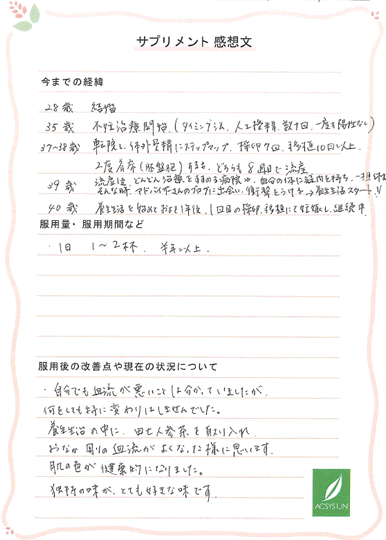 サプリメント 感想文
今までの経緯
28歳 結婚
35歳 不妊治療開始。(タイミング法、人工授精、数十回、一度も陽性なし)
37~38歳 転院し、体外受精にステップアップ、採卵7回、移植10回以上。
2度着床(胚盤胞)するも、どちらも8週目で流産
39歳 流産後、どんどん治療をすすめる病院や、自分の体に疑問を持ち、一担
そんな時、アドバイザーさんのブログに出会い、衝撃をうける→養生生活スタート!!
40歳 養生生活を始めておよそ1年後、1回目の採卵、移植にて妊娠し、継続中
服用量・服用期間など
・1日 1~2杯、半年以上。
服用後の改善点や現在の状況について
・自分でも血流が悪いことは分かっていましたが、
何をしても特に変わりはしませんでした。
養生生活の中に、田七人参茶を取り入れ、
おなか周りの血流がよくなった様に思います。
肌の色が健康的になりました。
独特の味が、とても好きな味です。
ACSYSUN